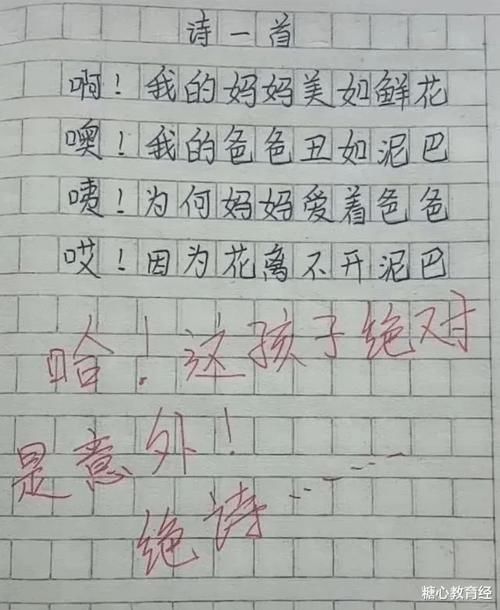 诗一首
啊!我的妈妈美如鲜花
噢!我的色色丑如泥巴
咦!为何妈妈爱着色色
哎!因为花离不开泥巴
哈!这孩子绝对
是意外!
绝诗……
糖心教育经